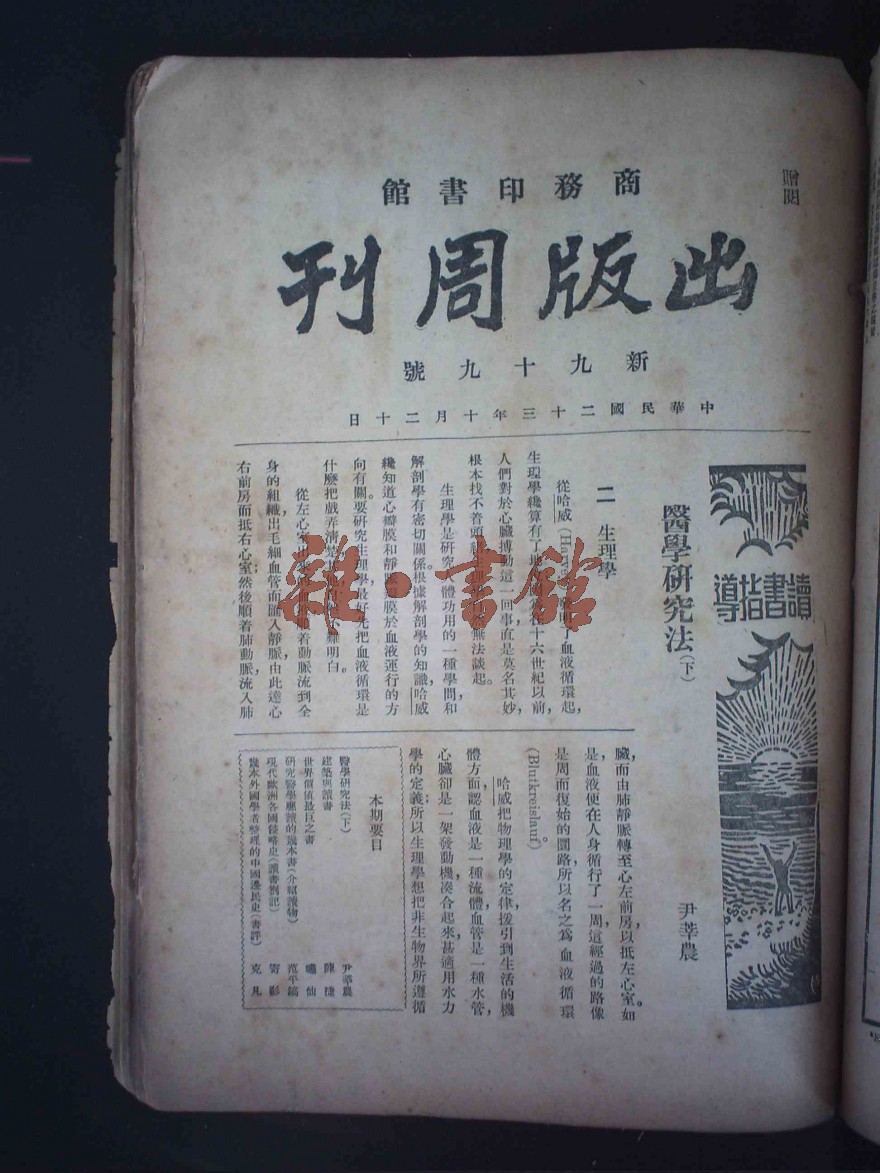 贈閱
商務印書館
出版周刊
新九十九號
中華民國二十三年十月二十日
讀書指導
醫學研究法(下)
尹莘農
二 生理學
從哈威(Harvey)發明了血液循環起，
生理學纔算有了地位。在十六世紀以前，
人們對於心臟搏動這一回事，直是莫名其妙，
根本找不着頭緒，血液無法談起。
生理學是研究人體功用的一種學問，和
解剖學有密切關係。根據解剖學的知識，哈威
纔知道心瓣膜和靜脈瓣膜於血液運行的方
向有關。要研究生理學，最好先把血液循環是
什麼把戲弄清楚，不難明白。
從左心室出來的血液，順着動脈流到全
身的組織，出毛細血管而匯入靜脈，由此達心
右前房而抵右心室，然後順着肺動脈，流入肺
臟，而由肺靜脈轉至心左前房，以抵左心室。如
是，血液便在人身循行了一周，這經過的路像
是周而復始的圜路，所以名之為血液循環
(Blutkreislauf)。
哈威把物理學的定律援引到生活的機
體方面，認血液是一種流體，血管是一種水管，
心臟卻是一架發動機，湊合起來，甚適用水力
學的定義；所以生理學想把非生物界所遵循
本期要目
醫學研究法(下) 尹莘農
建築與讀書 陳捷
世界價值最巨之書 嘯仙
研究醫學應讀的幾本書(介紹讀物) 范平鎬
現代歐洲各國侵略史(讀書劄記) 寄影
幾本外國學者整理的中國邊民史(書評) 克凡
雜·書館